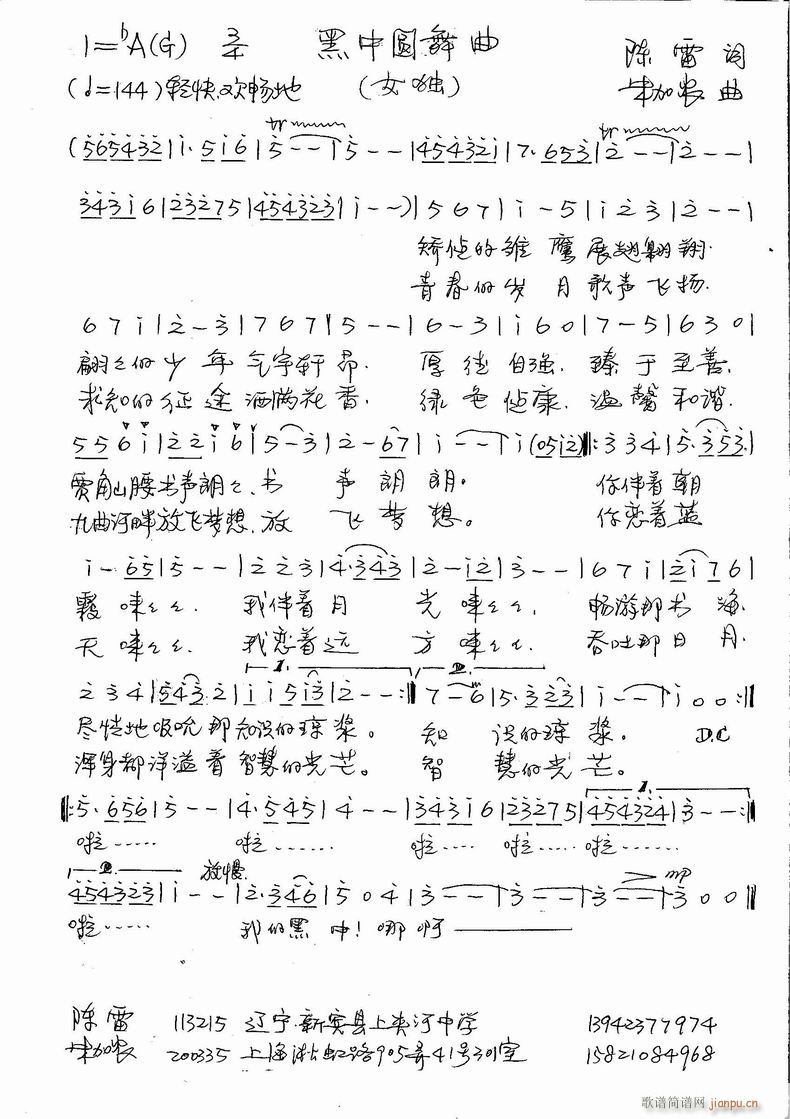 1=ᵇA(G) 3/4 黑中圆舞曲 陈雷 词
(♩=144) 轻快、欢畅地 (女独) 朱加农 曲
(565432|i· 5i6|5--|5--|45432i|7· 653|2--|2--|
343i6|23275|454323|i--)|567|i-5|i23|2--|
矫健的雏鹰展翅翱翔.
青春的岁月歌声飞扬.
67i|2-3|767|5--|6-3|i60|7-5|630|
翩々的少年气宇轩昂. 厚德自强. 臻于至善.
求知的征途洒满花香. 绿色健康. 温馨和谐.
556i|22i6i|5-3|2-67|i--|i(05i2)‖:334|5·353|
山腰书声朗々、书声朗朗。 你伴着朝
九曲河畔放飞梦想.放飞梦想。 你恋着蓝
i-65|5--|223|4·343|2-i2|3--|67i|2i76|
霞 唻々々. 我伴着月光 唻々々. 畅游那书海.
天 唻々々. 我恋着远方 唻々々. 吞吐那日月.
1. 2.
234|5432|ii5i3|2--:‖7-6|5·323|i--|i00‖
尽情地吸吮那知识的琼浆。 知识的琼浆。 D.C
浑身都洋溢着智慧的光芒。 智慧的光芒。
1.
‖:5·656|5--|4·545|4--|343i6|23275|454324|3--:‖
啦…… 啦…… 啦…… 啦…… 啦……
2. 放慢 mp
454323|i--|2·346|504|3--|3--|3--|300‖
啦…… 我的黑中!哪啊
陈雷 113215 辽宁.新宾县上夹河中学 13942377974
朱加农 200335 上海淞虹路905弄41号301室 15821084968
歌谱简谱网 jianpu.cn